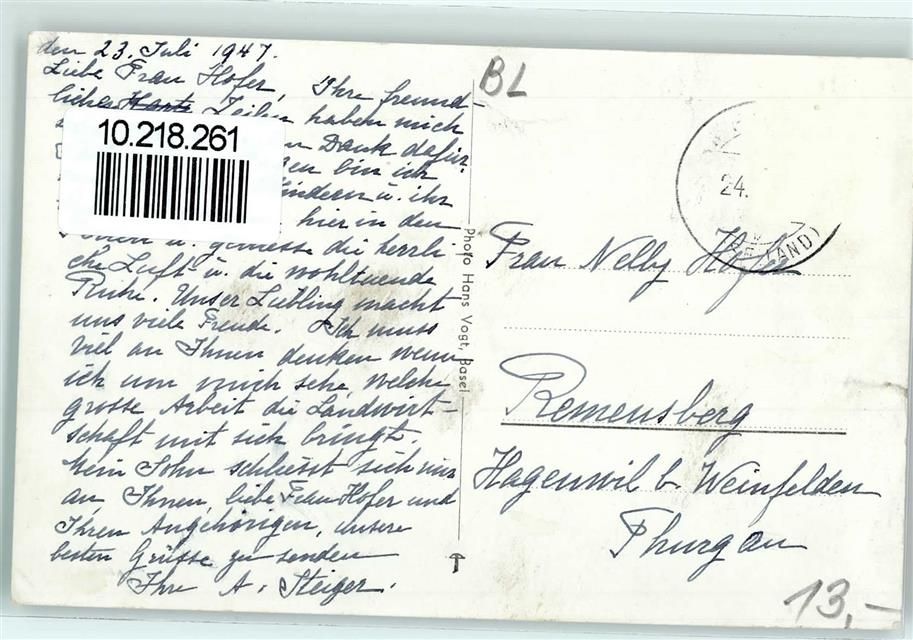 den 23. Juli 1947.
Liebe Frau Hofer, Ihre freund-
liche Karte Zeilen haben mich
10.218.261
Dank dafür.
bin ich
Kindern u. ihr
hier in den
u. geniesse die herrli
che Luft u. die wohltuende
Ruhe. Unser Liebling macht
uns viele Freude. Ich muss
viel an Ihnen denken wenn
ich um mich sehe, welche
grosse Arbeit die Landwirt-
schaft mit sich bringt.
Mein Sohn schliesst sich mir
an, Ihnen, liebe Frau Hofer und
Ihren Angehörigen, unsere
besten Grüsse zu senden
Ihre A. Steiger.
Photo Hans Vogt, Basel
BL
24.
LAND)
Frau Nelly Hofer
Remensberg
Hagenwil b Weinfelden
Thurgau
13,-